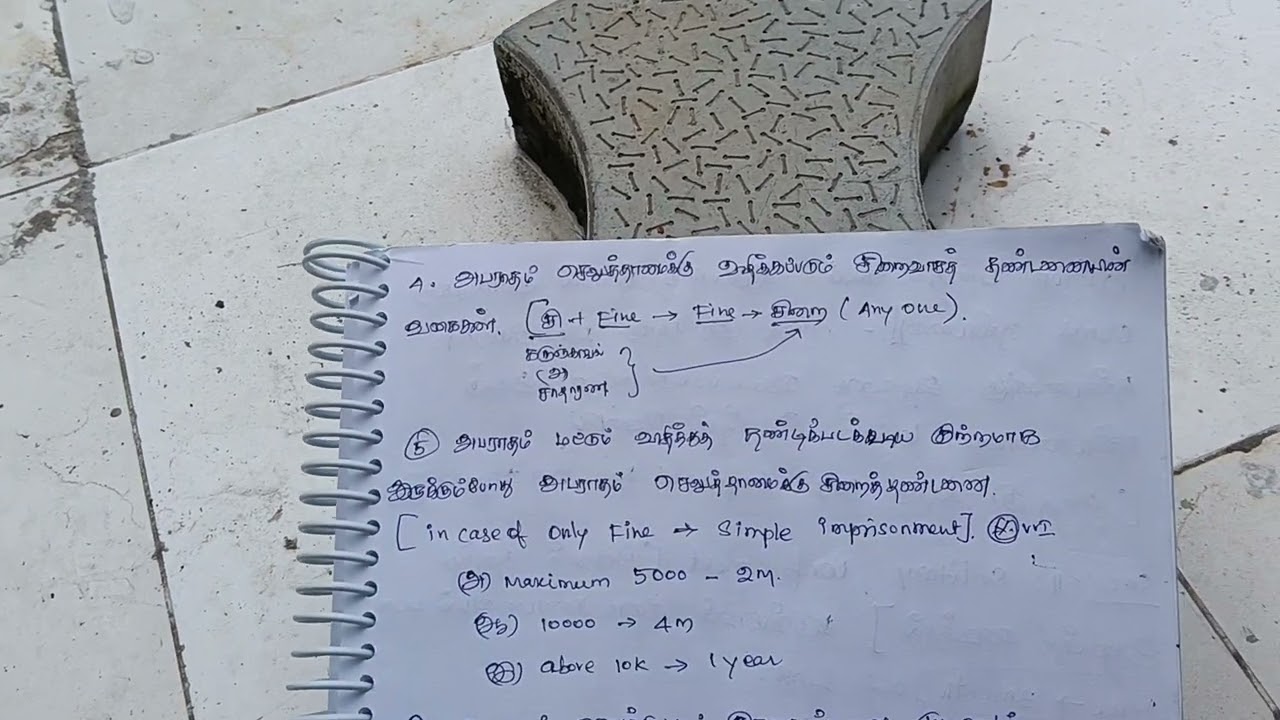 4. அபராதம் செலுத்தாமைக்கு விதிக்கப்படும் சிறைவாசத் தண்டனையின்
வகைகள். [சி + Fine → Fine → சிறை (Any one).
கடுங்காவல்
(அ)
சாதாரண
⑤ அபராதம் மட்டும் விதித்துத் தண்டிக்படக்கூடிய குற்றமாக
இருக்கும்போது அபராதம் செலுத்தாமைக்கு சிறைத்தண்டனை.
[in case of only Fine → Simple imprisonment].
(அ) Maximum 5000 - 2m.
(ஆ) 10000 → 4m
(இ) above 10k → 1 year